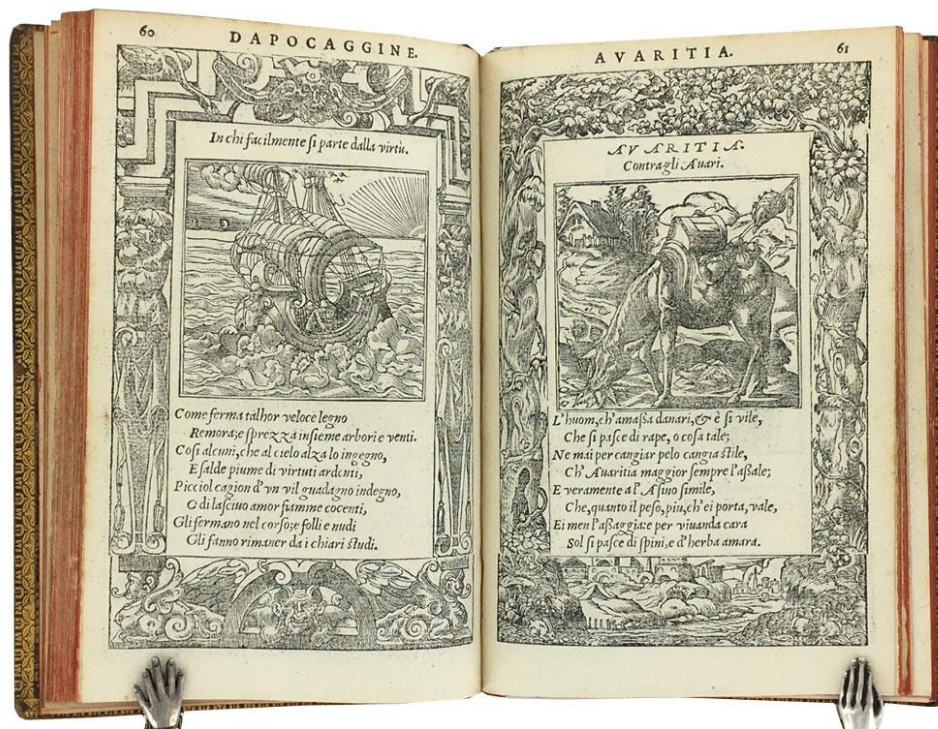 60
DAPOCAGGINE.
In chi facilmente si parte dalla virtù.
Come ferma talhor veloce legno
Remora; e sprezza insieme arbori e venti.
Cosi alcuni, che al cielo alza lo ingegno,
E salde piume di virtuti ardenti,
Picciol cagion d'vn vil guadagno indegno,
O di lasciuo amor fiamme cocenti,
Gli fermano nel corso; e folli e nudi
Gli fanno rimaner da i chiari studi.
AVARITIA.
61
AVARITIA.
Contra gli Auari.
L'huom, ch'amassa danari, & è si vile,
Che si pasce di rape, o cosa tale;
Ne mai per cangiar pelo cangia stile,
Ch'Auaritia maggior sempre l'assale;
E veramente al'Asino simile,
Che, quanto il peso, piu, ch'ei porta, vale,
Ei men l'assaggia: e per viuanda cara
Sol si pasce di spini, e d'herba amara.